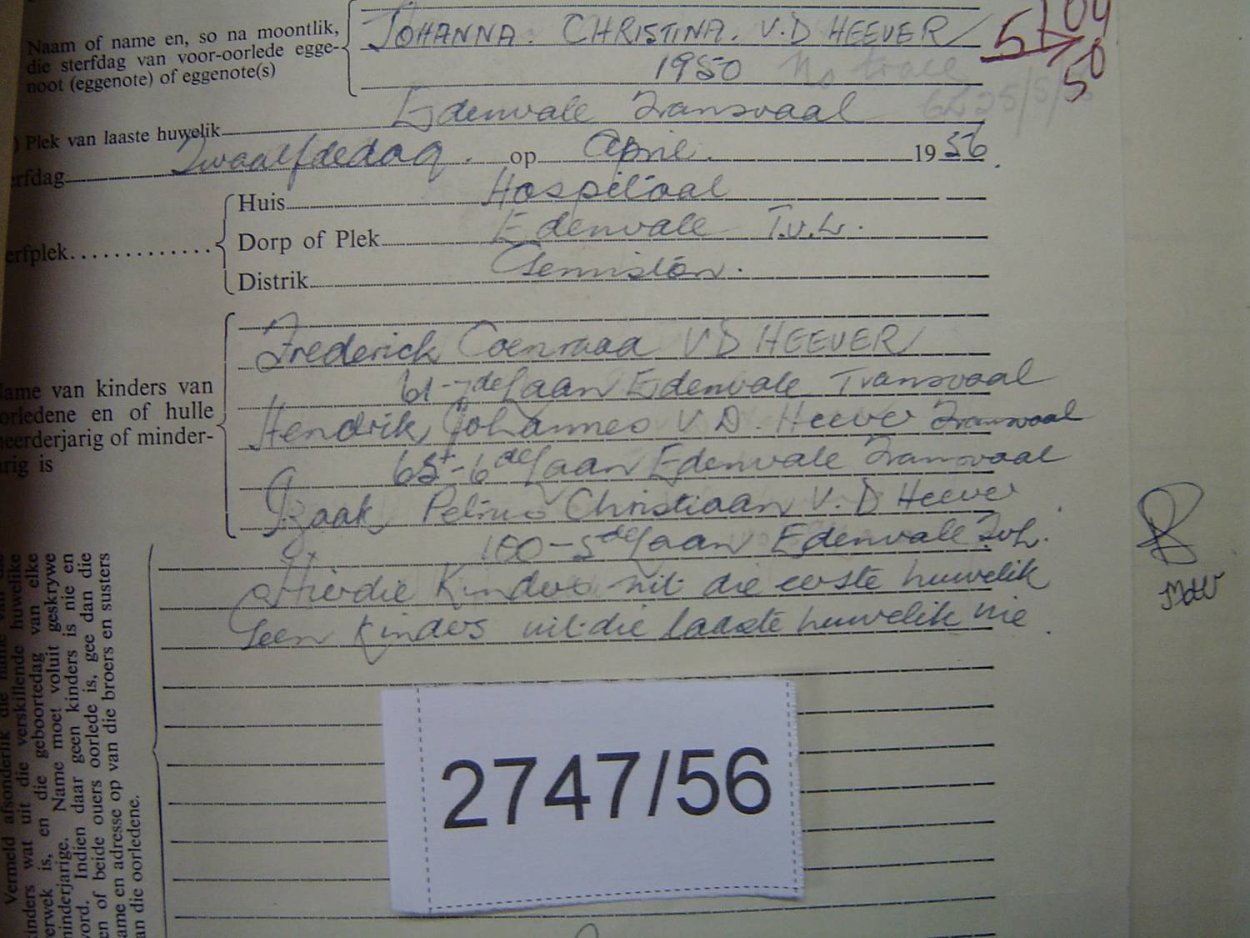 Naam of name en, so na moontlik,
die sterfdag van voor-oorlede egge-
noot (eggenote) of eggenote(s)
JOHANNA. CHRISTINA. V.D HEEVER
1950 No trace
5104
50
) Plek van laaste huwelik Edenvale Transvaal
erfdag Twaalfdedag. op April. 1956.
erfplek
Huis Hospitaal
Dorp of Plek Edenvale T.v.L.
Distrik Germiston.
Name van kinders van
orledene en of hulle
eerderjarig of minder-
rig is
Frederick Coenraad V D HEEVER
61-7de Laan Edenvale Transvaal
Hendrik Johannes V.D. Heever Transvaal
65-6de Laan Edenvale Transvaal
Izaak Petrus Christiaan V.D Heever
100-5de Laan Edenvale Tvl.
Hierdie Kinders uit die eerste huwelik
Geen Kinders uit die laaste huwelik nie.
Vermeld afsonderlik die name van die
kinders wat uit die verskillende huwelike
verwek is, en die geboortedag van elke
minderjarige. Name moet voluit geskrywe
word. Indien daar geen kinders is nie en
en of beide ouers oorlede is, gee dan die
name en adresse op van die broers en susters
van die oorledene.
2747/56